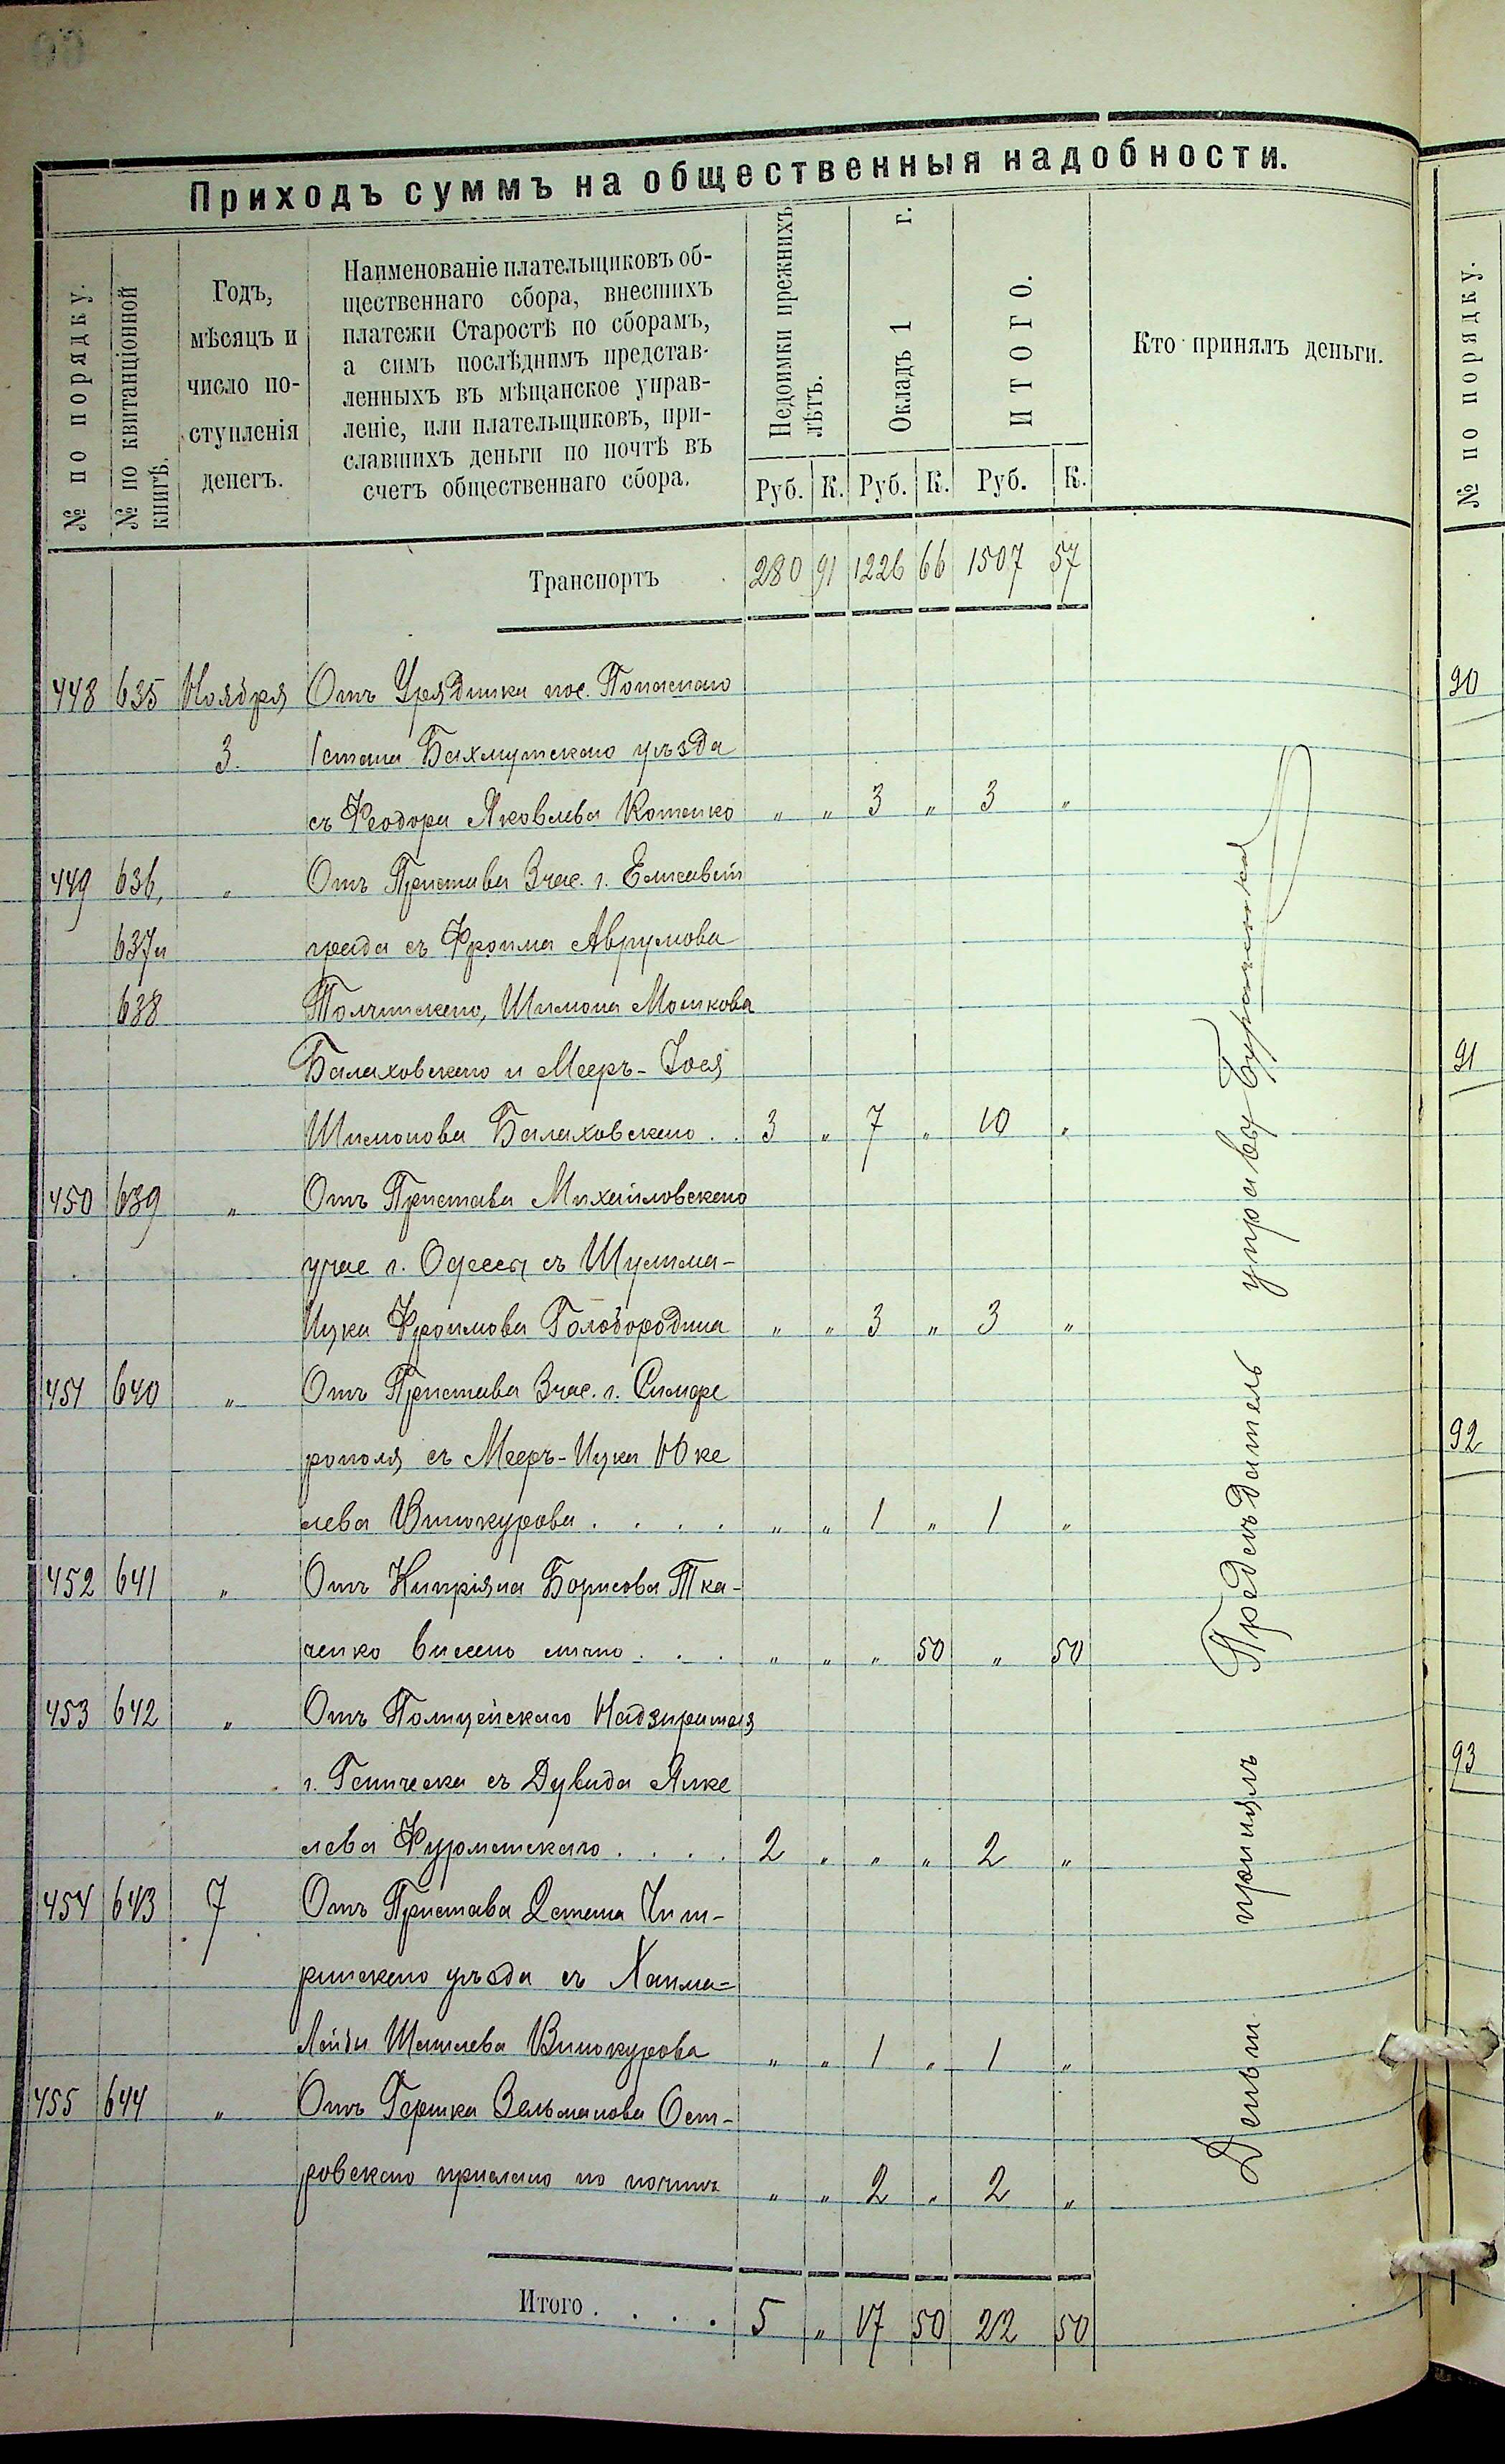 Приходъ суммъ на общественныя надобности.
№ по порядку.
№ по квитанціонной
книгѣ.
Годъ,
мѣсяцъ и
число по-
ступленія
денегъ.
Наименованіе плательщиковъ об-
щественнаго сбора, внесшихъ
платежи Старостѣ по сборамъ,
а симъ послѣднимъ представ-
ленныхъ въ мѣщанское управ-
леніе, или плательщиковъ, при-
славшихъ деньги по почтѣ въ
счетъ общественнаго сбора.
Недоимки прежнихъ
лѣтъ.
Окладъ 1 г.
ИТОГО.
Кто принялъ деньги.
Руб. К. Руб. К. Руб. К.
Транспортъ 280 91 1226 66 1507 57
448 635 Ноября Отъ Урядника пос. Попаснаго
3. 1 стана Бахмутскаго уѣзда
съ Феодора Яковлева Котенко " " 3 " 3 "
449 636, " Отъ Пристава 3 час. г. Елисавет
637 и града съ Фроима Аврумова
638 Толчинскаго, Шимона Мошкова
Балаховскаго и Мееръ-Іося
Шимонова Балаховскаго . . 3 " 7 " 10 "
450 639 " Отъ Пристава Михайловскаго
учас г. Одессы съ Шулима-
Ицка Фроимова Голобородина " " 3 " 3 "
451 640 " Отъ Пристава 3 час. г. Симфе
рополя съ Мееръ-Ицка Юке
лева Винокурова . . . . " " 1 " 1 "
452 641 " Отъ Кипріяна Борисова Тка-
ченко внесено лично . . . " " " 50 " 50
453 642 " Отъ Полицейскаго Надзирателя
г. Геническа съ Дувида Янке
лева Фурманскаго . . . . 2 " " " 2 "
454 643 7 Отъ Пристава 2 стана Чиги-
ринскаго уѣзда съ Хаима-
Лейзи Шмилева Винокурова " " 1 " 1 "
455 644 " Отъ Гершка Зельманова Ост-
ровскаго прислано по почтѣ " " 2 " 2 "
Итого . . . . 5 " 17 50 22 50
Деньги принялъ Предсѣдатель управы
№ по порядку.
90
91
92
93